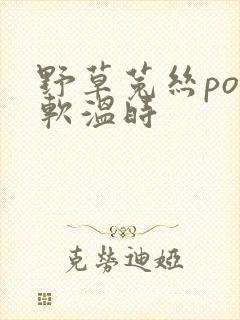 野草菟絲po
軟溫時
克勞迪婭